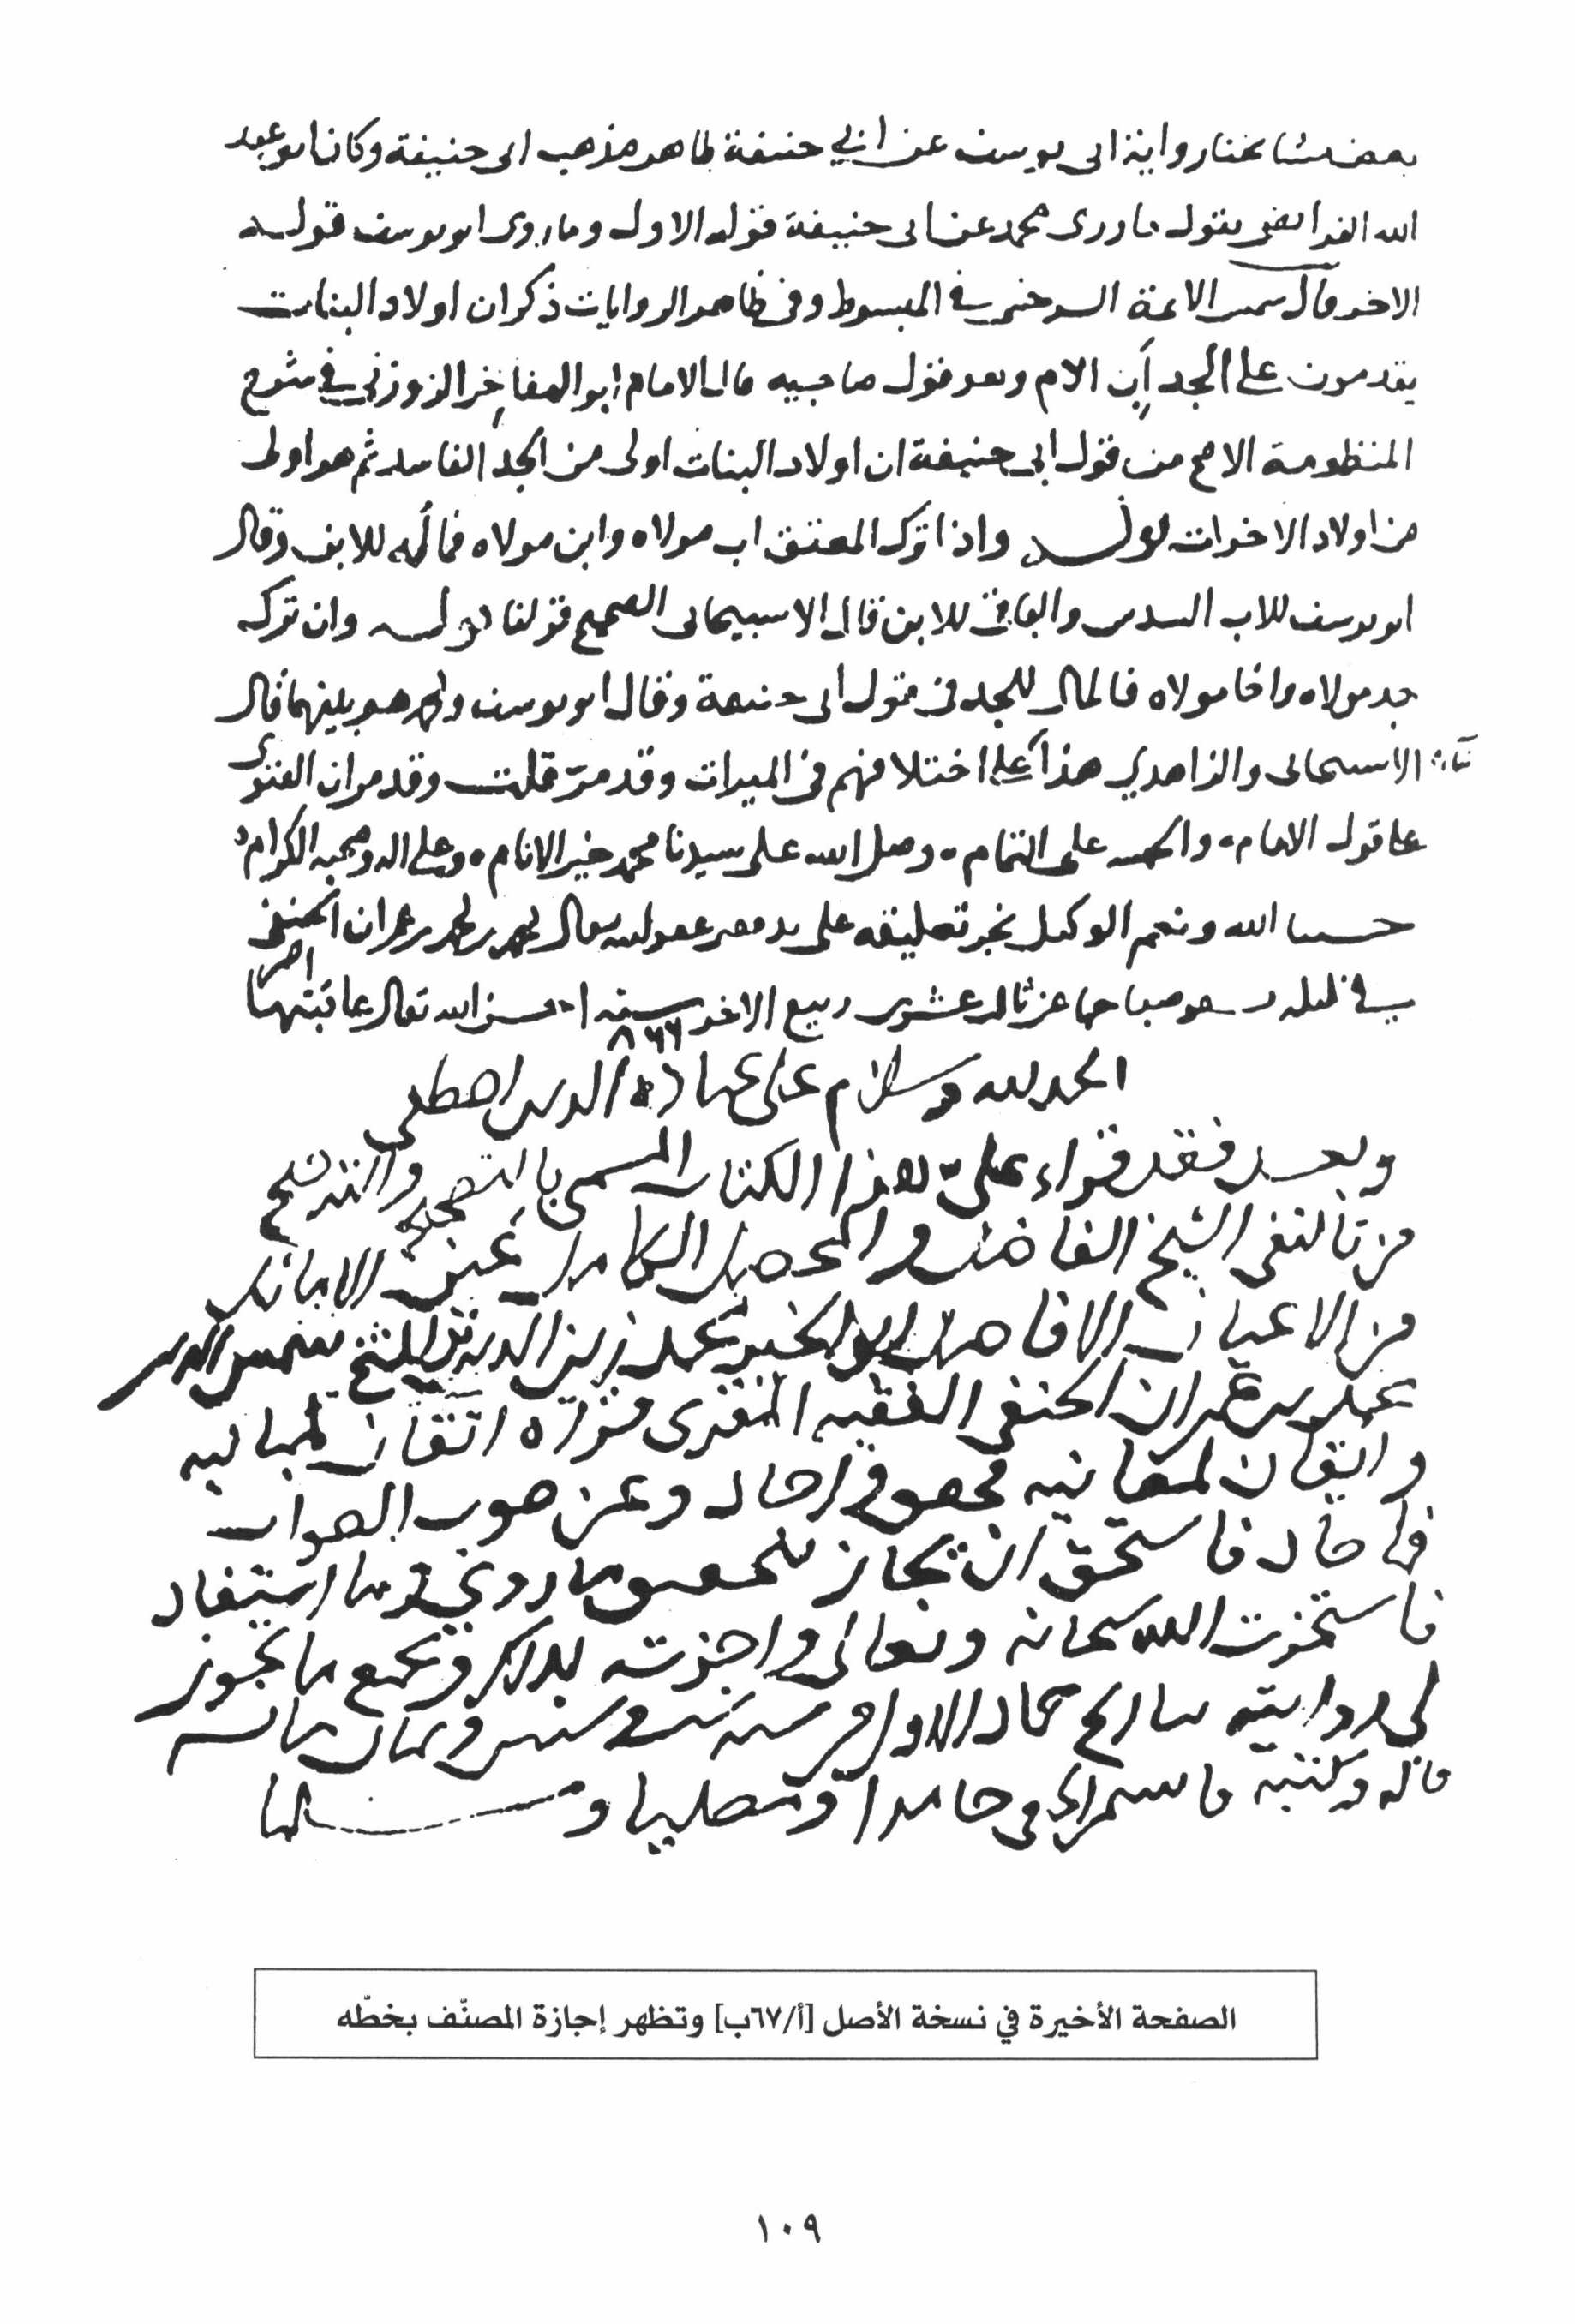 بعض مشايخنا رواية ابى يوسف عن ابي حنيفة ظاهر مذهب ابى حنيفة وكان ابو عبد
الله الفرائضى يقول ما روى محمد عن ابى حنيفة قوله الاول وما روى ابو يوسف قوله
الاخر قال شمس الائمة السرخسى في المبسوط وفى ظاهر الروايات ذكر ان اولاد البنات
يقدمون على الجد اب الام وهو قول صاحبيه قال الامام ابو المفاخر الزوزني في شرح
المنظومة الاصح من قول ابى حنيفة ان اولاد البنات اولى من الجد الفاسد ثم هو اولى
من اولاد الاخوات قوله واذا ترك المعتق اب مولاه وابن مولاه فماله للابن وقال
ابو يوسف للاب السدس والباقى للابن قال الاسبيجابى الصحيح قولنا قوله وان ترك
جد مولاه واخا مولاه فالمال للجد فى قول ابى حنيفة وقال ابو يوسف ومحمد هو بينهما قال
الاسبيجابى والزاهدي هذا على اختلافهم فى الميراث وقد مر قلت وقد مر ان الفتوى
على قول الامام والحمد لله على التمام وصلى الله على سيدنا محمد خير الانام وعلى اله وصحبه الكرام
حسبنا الله ونعم الوكيل نجز تعليقه على يد عفو الله تعالى محمد بن محمد بن عمران الحنفى
في صباحها عن ثالث عشرى ربيع الاخر سنة ٨٦٦ احسن الله تعالى عاقبتها
الحمد لله وسلام على عباده الذين اصطفى
وبعد فقد قراء علي هذا الكتاب المسمى بالتصحيح والترجيح
من تاليفى الشيخ الفاضل والمحصل الكامل عين الاماثل
من الاعيان الافاضل ابو الخير محمد زين الدين بن الشيخ شمس الدين
محمد بن عمران الحنفى الفقيه المقرى قراة اتقان لمبانيه
وايقان لمعانيه فحقق واجاد وعن صوب الصواب
فما حاد فاستحق ان يجاز بتحقيق ما روى وما استفاد
فاستخرت الله سبحانه وتعالى واجزته بذلك وبجميع ما يجوز
لى روايته بتاريخ جماد الاول من سنة ست وستين وثمان مائة
قاله وكتبه قاسم الحنفى حامدا ومصليا ومسلما
الصفحة الأخيرة في نسخة الأصل [أ/٦٧ب] وتظهر إجازة المصنّف بخطّه
١٠٩